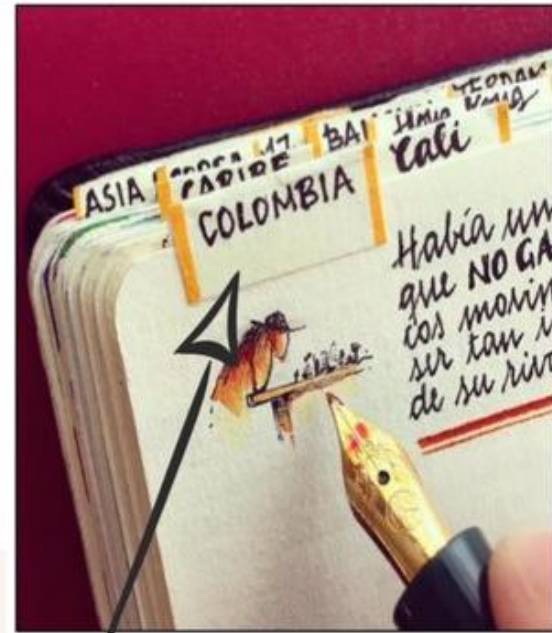 ASIA
CARIBE
BAL
Cali
COLOMBIA
Había un
que NO GA
cos mosin
ser tan i
de su riv